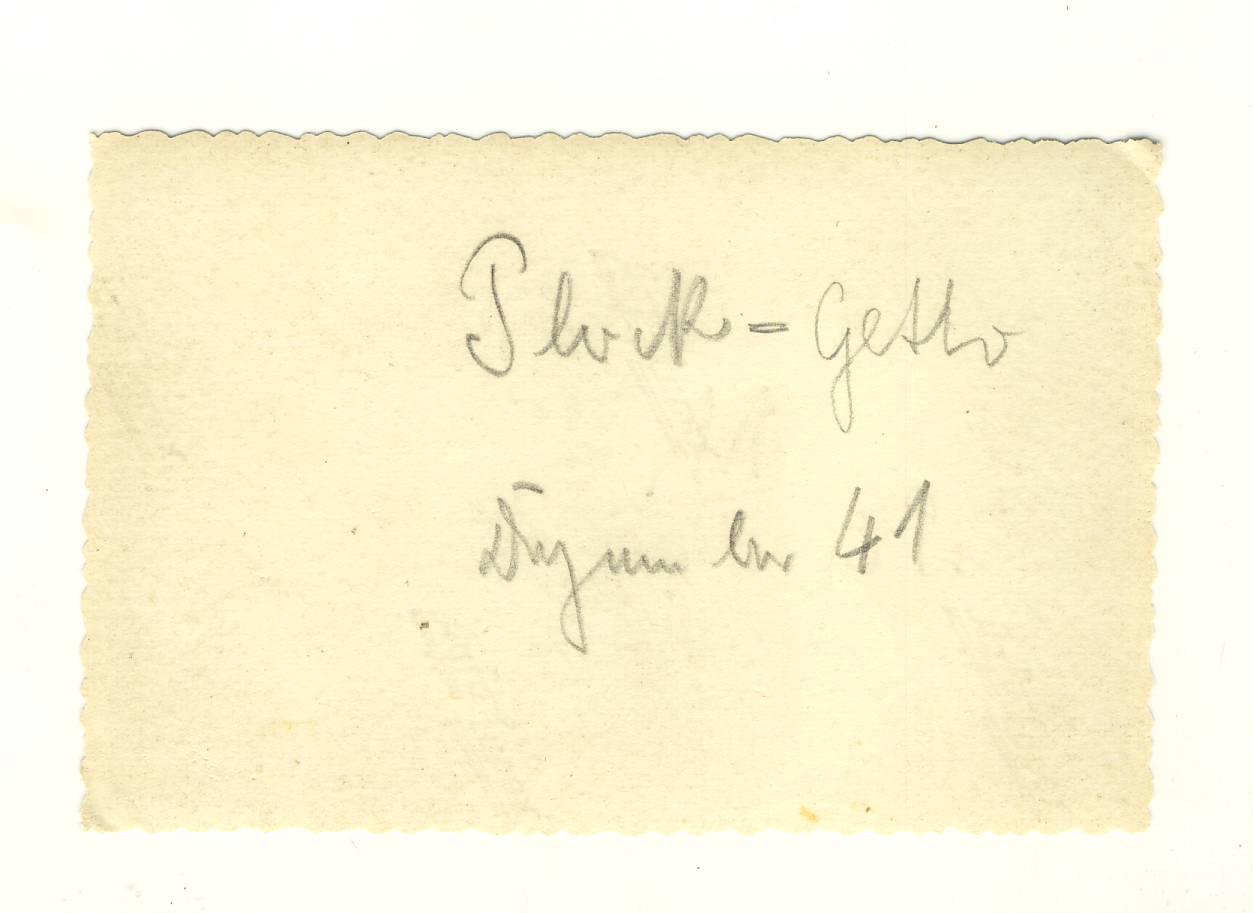 Plock = Getto
Dezember 41